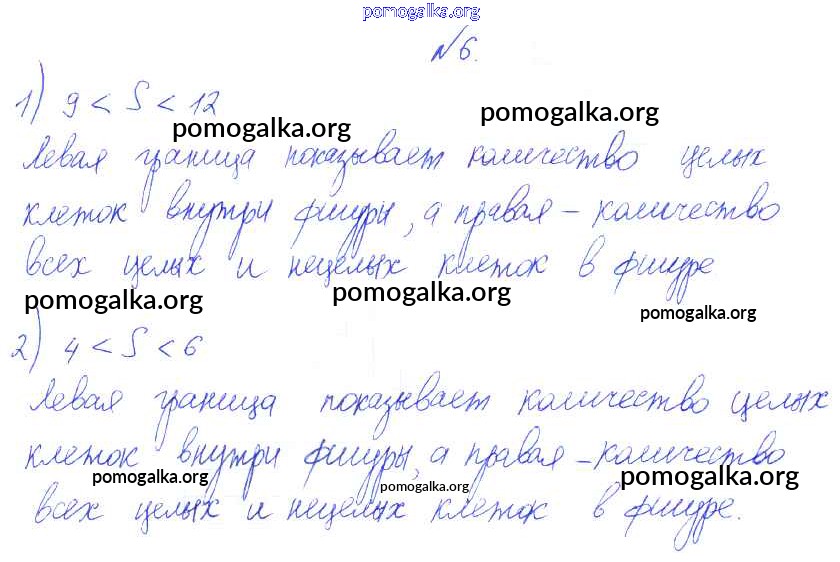 pomogalka.org
№6.
1) 9 < S < 12
pomogalka.org pomogalka.org
Левая граница показывает количество целых
клеток внутри фигуры, а правая – количество
всех целых и нецелых клеток в фигуре
pomogalka.org pomogalka.org pomogalka.org
2) 4 < S < 6
Левая граница показывает количество целых
клеток внутри фигуры, а правая – количество
pomogalka.org pomogalka.org pomogalka.org
всех целых и нецелых клеток в фигуре.